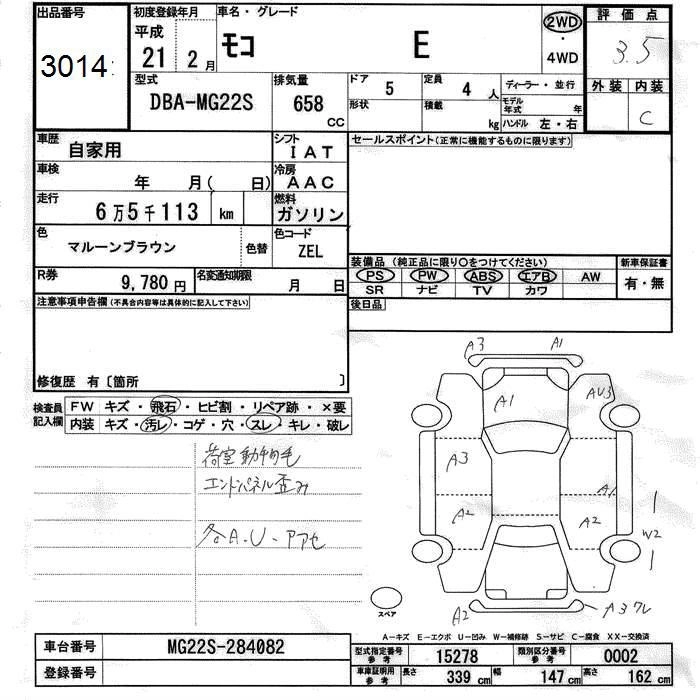 出品番号
3014
初度登録年月
平成
21 2月
車名・グレード
モコ E
2WD
・
4WD
評価点
3.5
外装 内装
C
型式
DBA-MG22S
排気量
658
CC
ドア 5
定員 4 人
ディーラー・並行
形状
積載 kg
モデル年式 年
ハンドル 左・右
車歴
自家用
シフト
IAT
セールスポイント(正常に機能するものに限ります)
車検
年 月( 日)
冷房
AAC
走行
6万5千113 km
燃料
ガソリン
色
マルーンブラウン
色替
色コード
ZEL
R券
9,780円
名変通知期限
月 日
装備品 (純正品に限り○をつけてください)
新車保証書
PS PW ABS エアB AW
SR ナビ TV カワ
有・無
注意事項申告欄(不具合内容等は具体的に記入して下さい)
後日品
修復歴 有〔箇所 〕
検査員記入欄
FW キズ・飛石・ヒビ割・リペア跡・×要
内装 キズ・汚レ・コゲ・穴・スレ・キレ・破レ
荷室動物毛
エンドパネル歪み
各A.U.
A3 A1
A1 AU3
A3 A1
A2 A2 W2
スペア
A2 A3ワレ
A-キズ E-エクボ U-凹み W-補修跡 S-サビ C-腐食 XX-交換済
車台番号 MG22S-284082
登録番号
型式指定番号参考 15278
類別区分番号参考 0002
車庫証明用参考
長さ 339 cm
幅 147 cm
高さ 162 cm